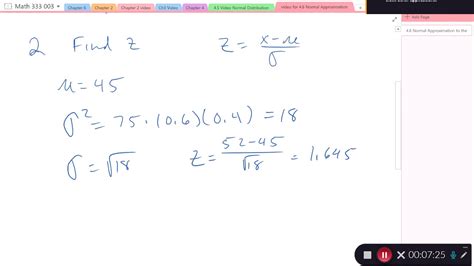 Math 333 003
Chapter 6
Chapter 2
Chapter 2 video
Ch3 Video
Chapter 4
4.5 Video Normal Distribution
video for 4.6 Normal Approximation
Add Page
4.6 Normal Approximation to the
2 Find z z = x-μ/σ
μ = 45
σ² = 75·(0.6)(0.4) = 18
σ = √18 z = 52-45/√18 = 1.645
00:07:25